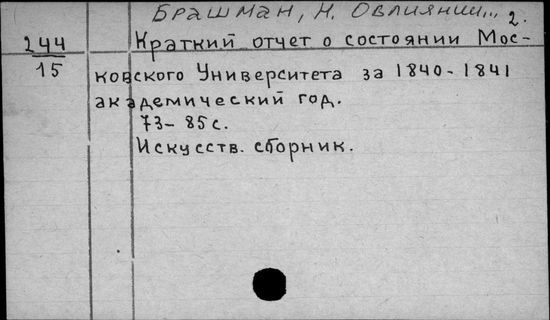 Брашман, Н. О влиянии... 2.
244
15
Краткий отчет о состоянии Мос-
ковского Университета за 1840-1841
академический год.
73-85 с.
Искусств. сборник.